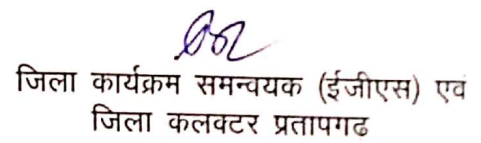 जिला कार्यक्रम समन्वयक (ईजीएस) एवं
जिला कलक्टर प्रतापगढ